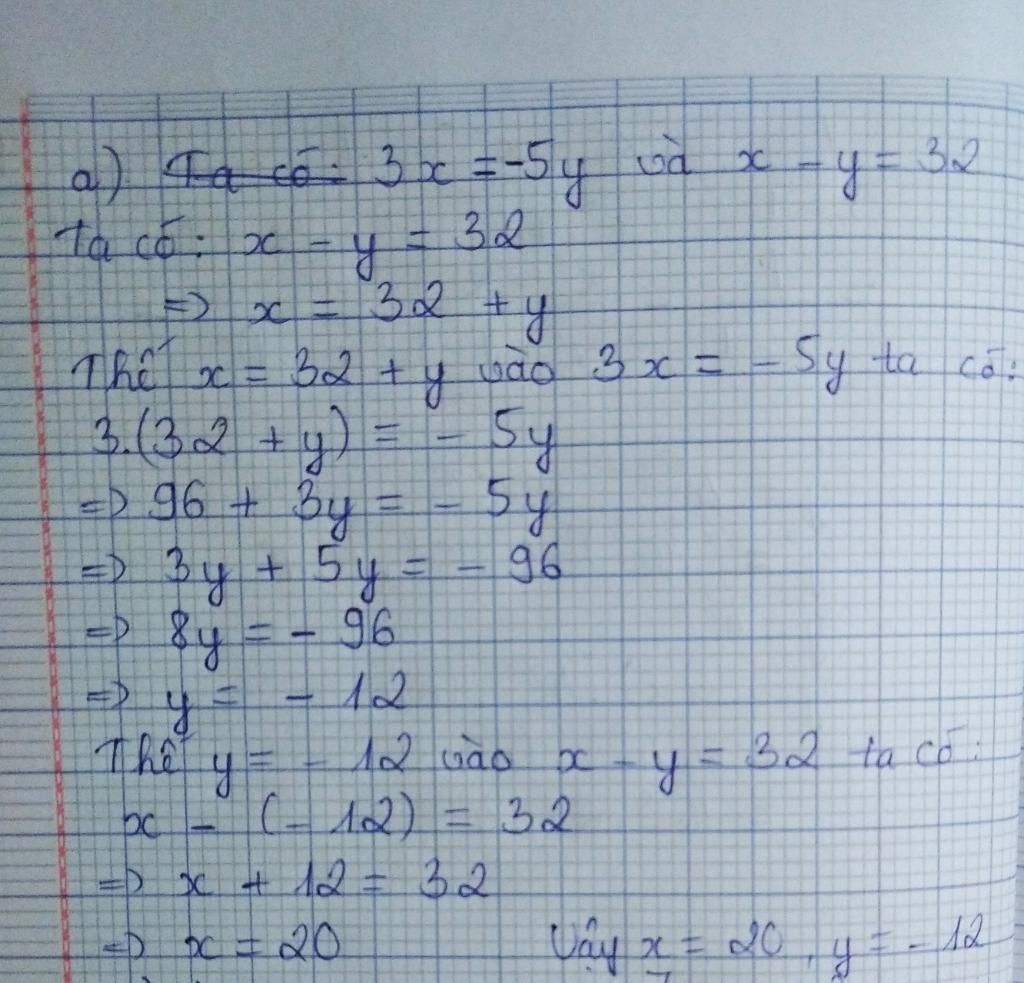 a) Ta có: 3x = -5y và x - y = 32
Ta có: x - y = 32
=> x = 32 + y
Thế x = 32 + y vào 3x = - 5y ta có:
3.(32 + y) = - 5y
=> 96 + 3y = - 5y
=> 3y + 5y = - 96
=> 8y = - 96
=> y = - 12
Thế y = - 12 vào x - y = 32 ta có:
x - (- 12) = 32
=> x + 12 = 32
=> x = 20 Vậy x = 20, y = - 12